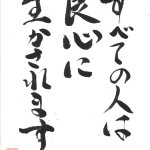 すべての人は
良心に
生かされます